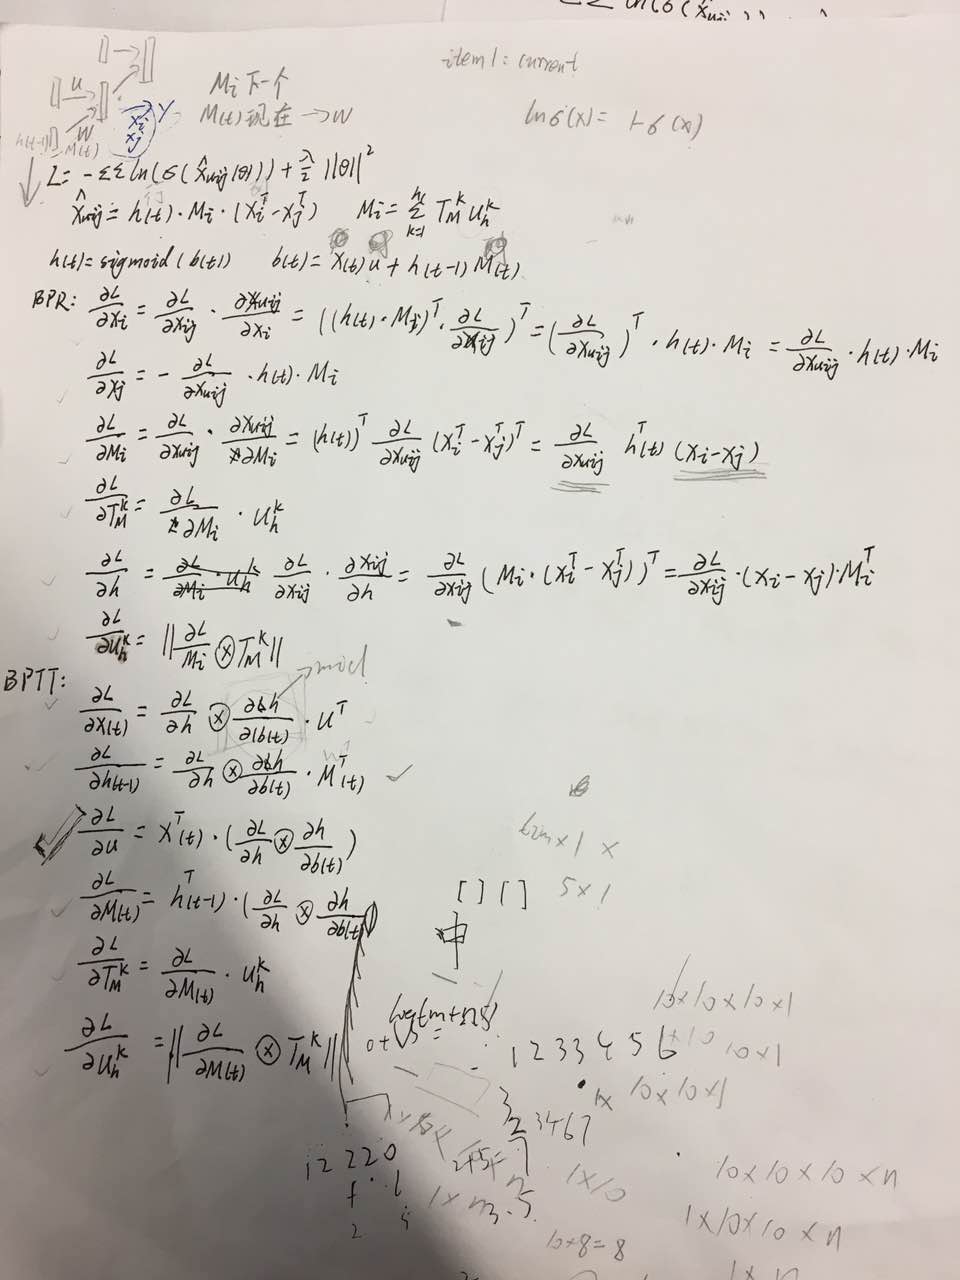 item1: current
U
Mi 下一个
M(t) 现在 → W
lnσ(x) = 1-σ(x)
xi Y
xj
h(t-1) W M(t)
L = -ΣΣln(σ(x̂uij(θ))) + λ/2 ||θ||²
x̂uij = h(t)·Mi·(xi^T - xj^T)  Mi = Σ_{k=1} T_M^k U_h^k
h(t) = sigmoid(b(t))  b(t) = x(t)u + h(t-1)M(t)
BPR: ∂L/∂xi = ∂L/∂xij · ∂xuij/∂xi = ((h(t)·Mj)^T · ∂L/∂xij)^T = (∂L/∂xuij)^T · h(t)·Mi = ∂L/∂xuij · h(t)·Mi
∂L/∂xj = - ∂L/∂xuij · h(t)·Mi
∂L/∂Mi = ∂L/∂xuij · ∂xuij/∂Mi = (h(t))^T ∂L/∂xuij (xi^T - xj^T)^T = ∂L/∂xuij h^T(t) (xi-xj)
∂L/∂T_M^k = ∂L/∂Mi · U_h^k
∂L/∂h = ∂L/∂Mi · U_h^k ∂L/∂xij · ∂xij/∂h = ∂L/∂xij (Mi·(xi^T - xj^T))^T = ∂L/∂xij · (xi-xj)·Mi^T
∂L/∂U_h^k = ||∂L/Mi ⊗ T_M^k||
BPTT:
→ mid
∂L/∂x(t) = ∂L/∂h ⊗ ∂h/∂(b(t)) · U^T
∂L/∂h(t-1) = ∂L/∂h ⊗ ∂h/∂b(t) · M^T(t) ✓
✓ ∂L/∂u = x^T(t)·(∂L/∂h ⊗ ∂h/∂b(t))
∂L/∂M(t) = h^T(t-1)·(∂L/∂h ⊗ ∂h/∂b(t))
[ ] [ ] 5×1
中
∂L/∂T_M^k = ∂L/∂M(t) · U_h^k
∂L/∂U_h^k = ||∂L/∂M(t) ⊗ T_M^k||
10×10×10×1
1 2 3 3 4 5 6
10×1
1× 10×10×1
2 3 4 6 7
1 2 2 2 0
2+5=7
1×10
10×10×10×n
1×10×10×n
10+8=8
1×n